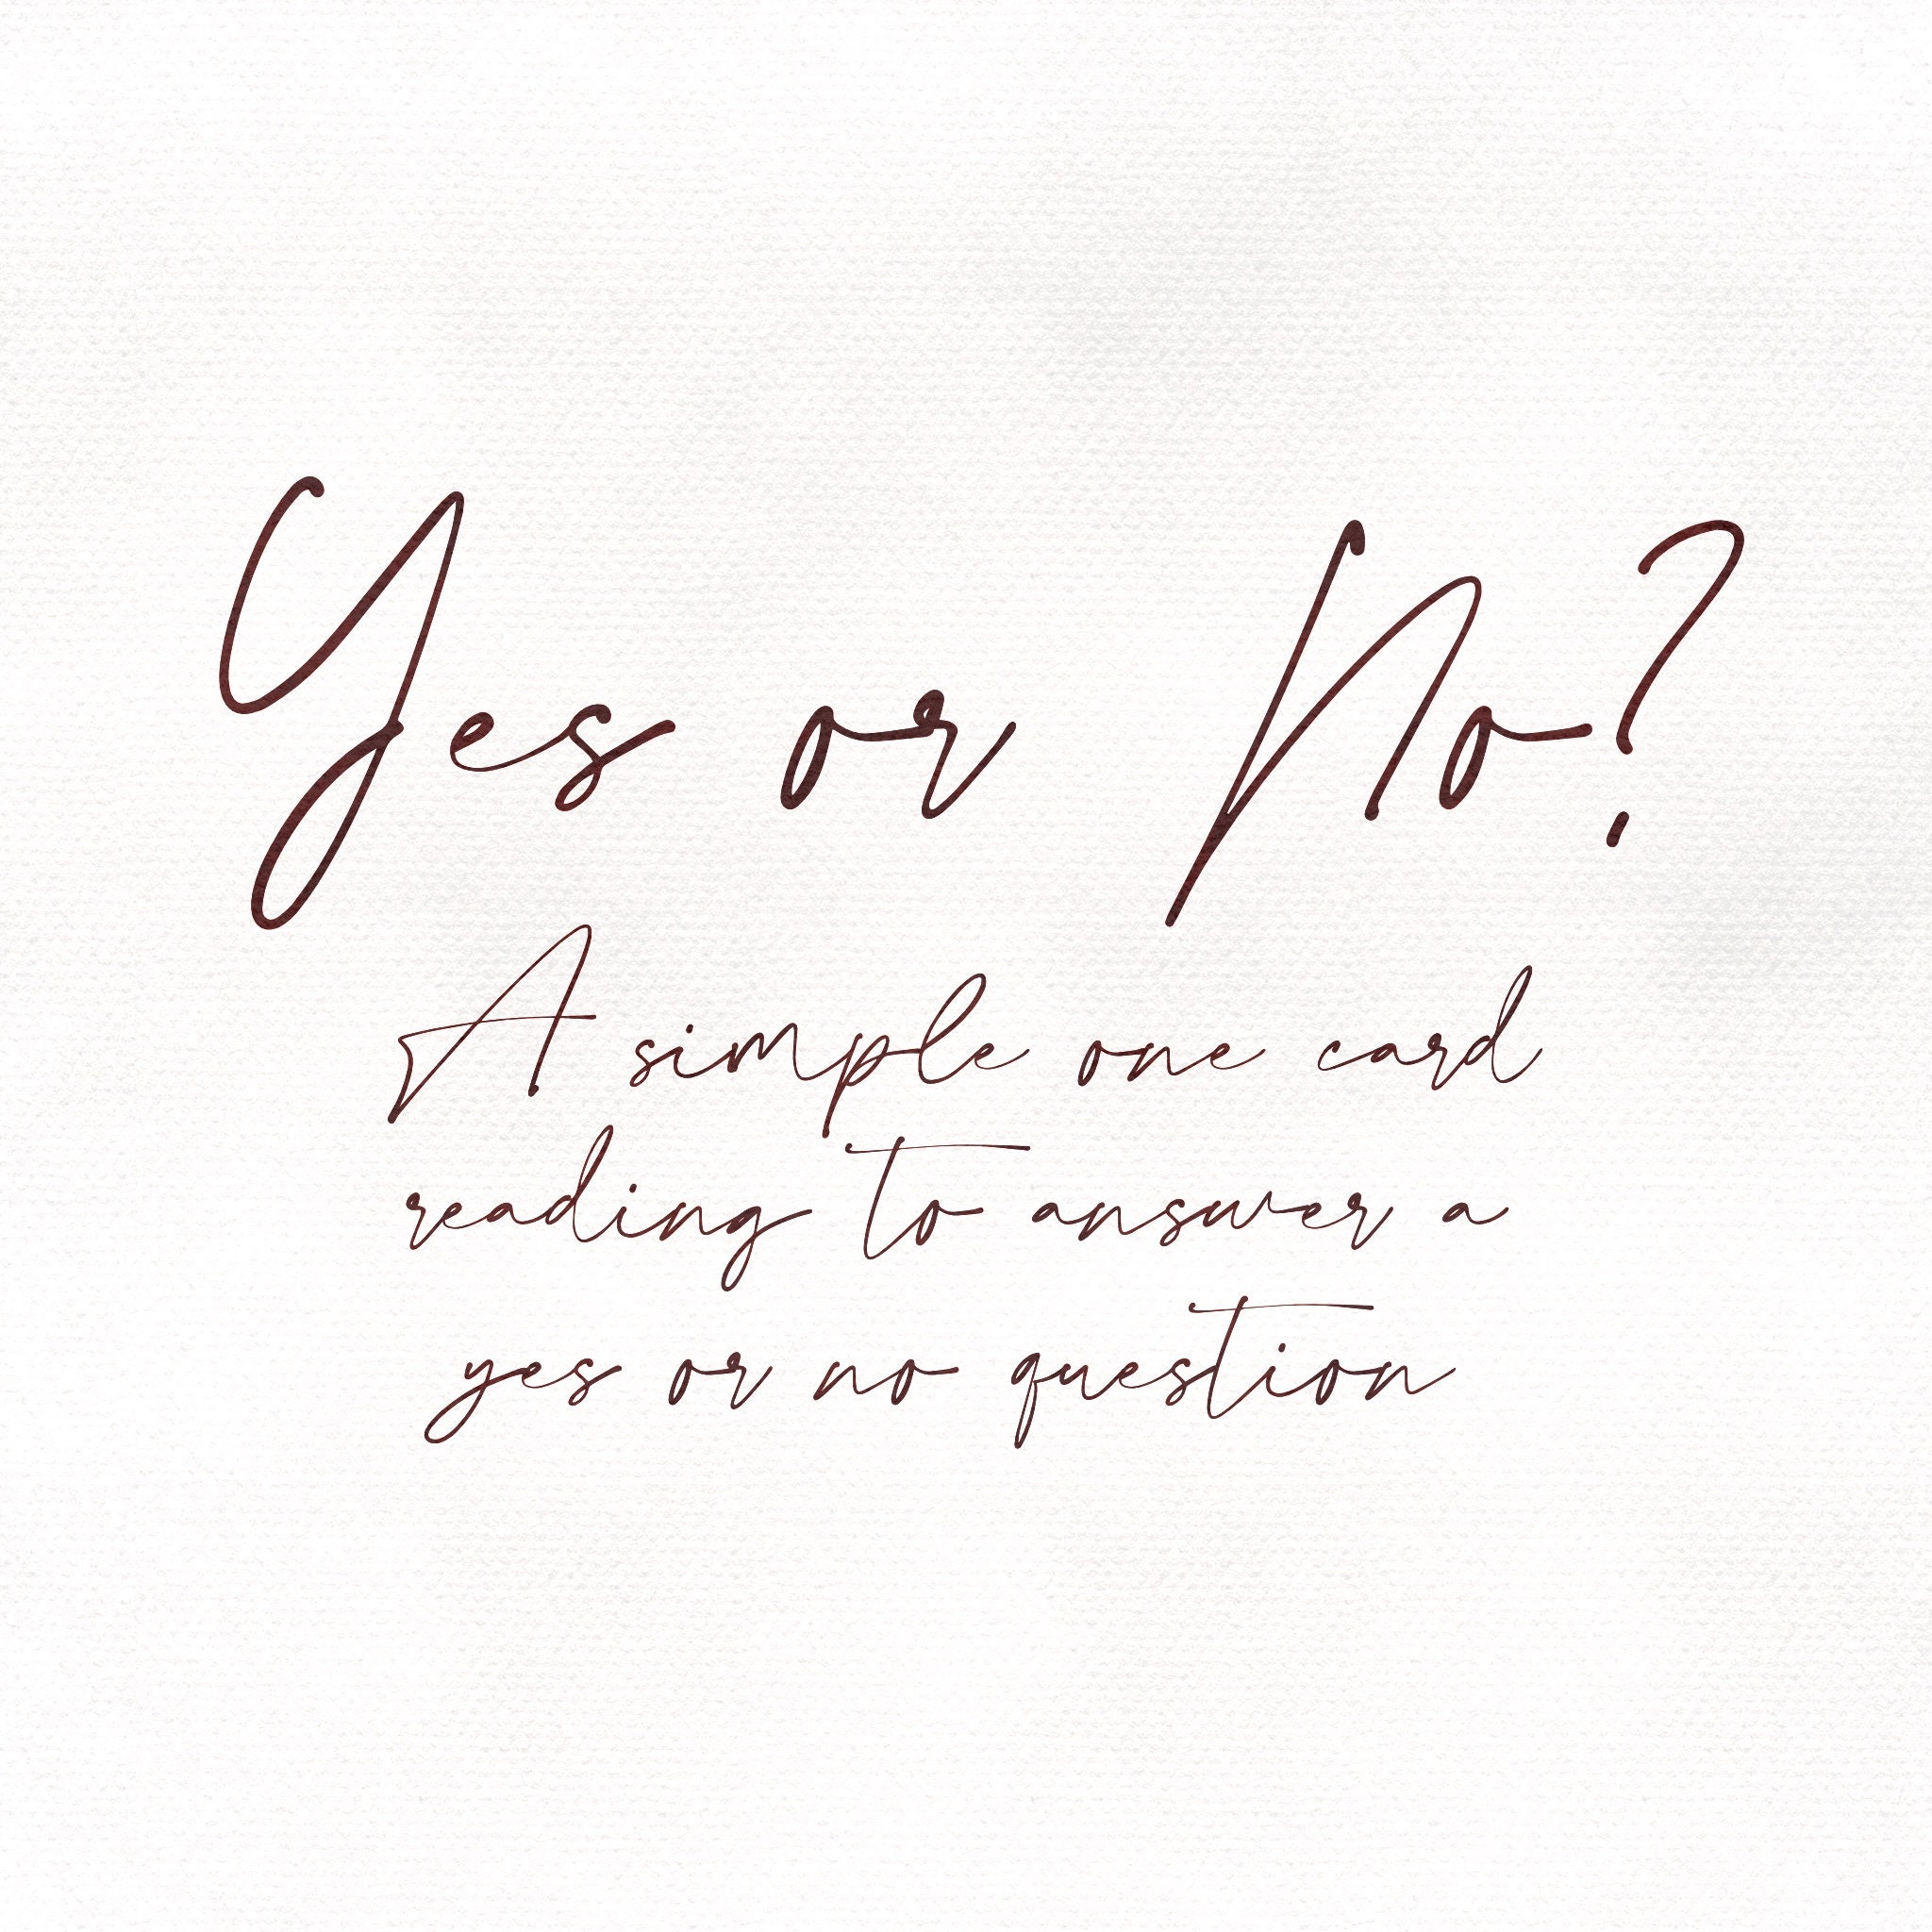 Yes or No?
A simple one card
reading to answer a
yes or no question